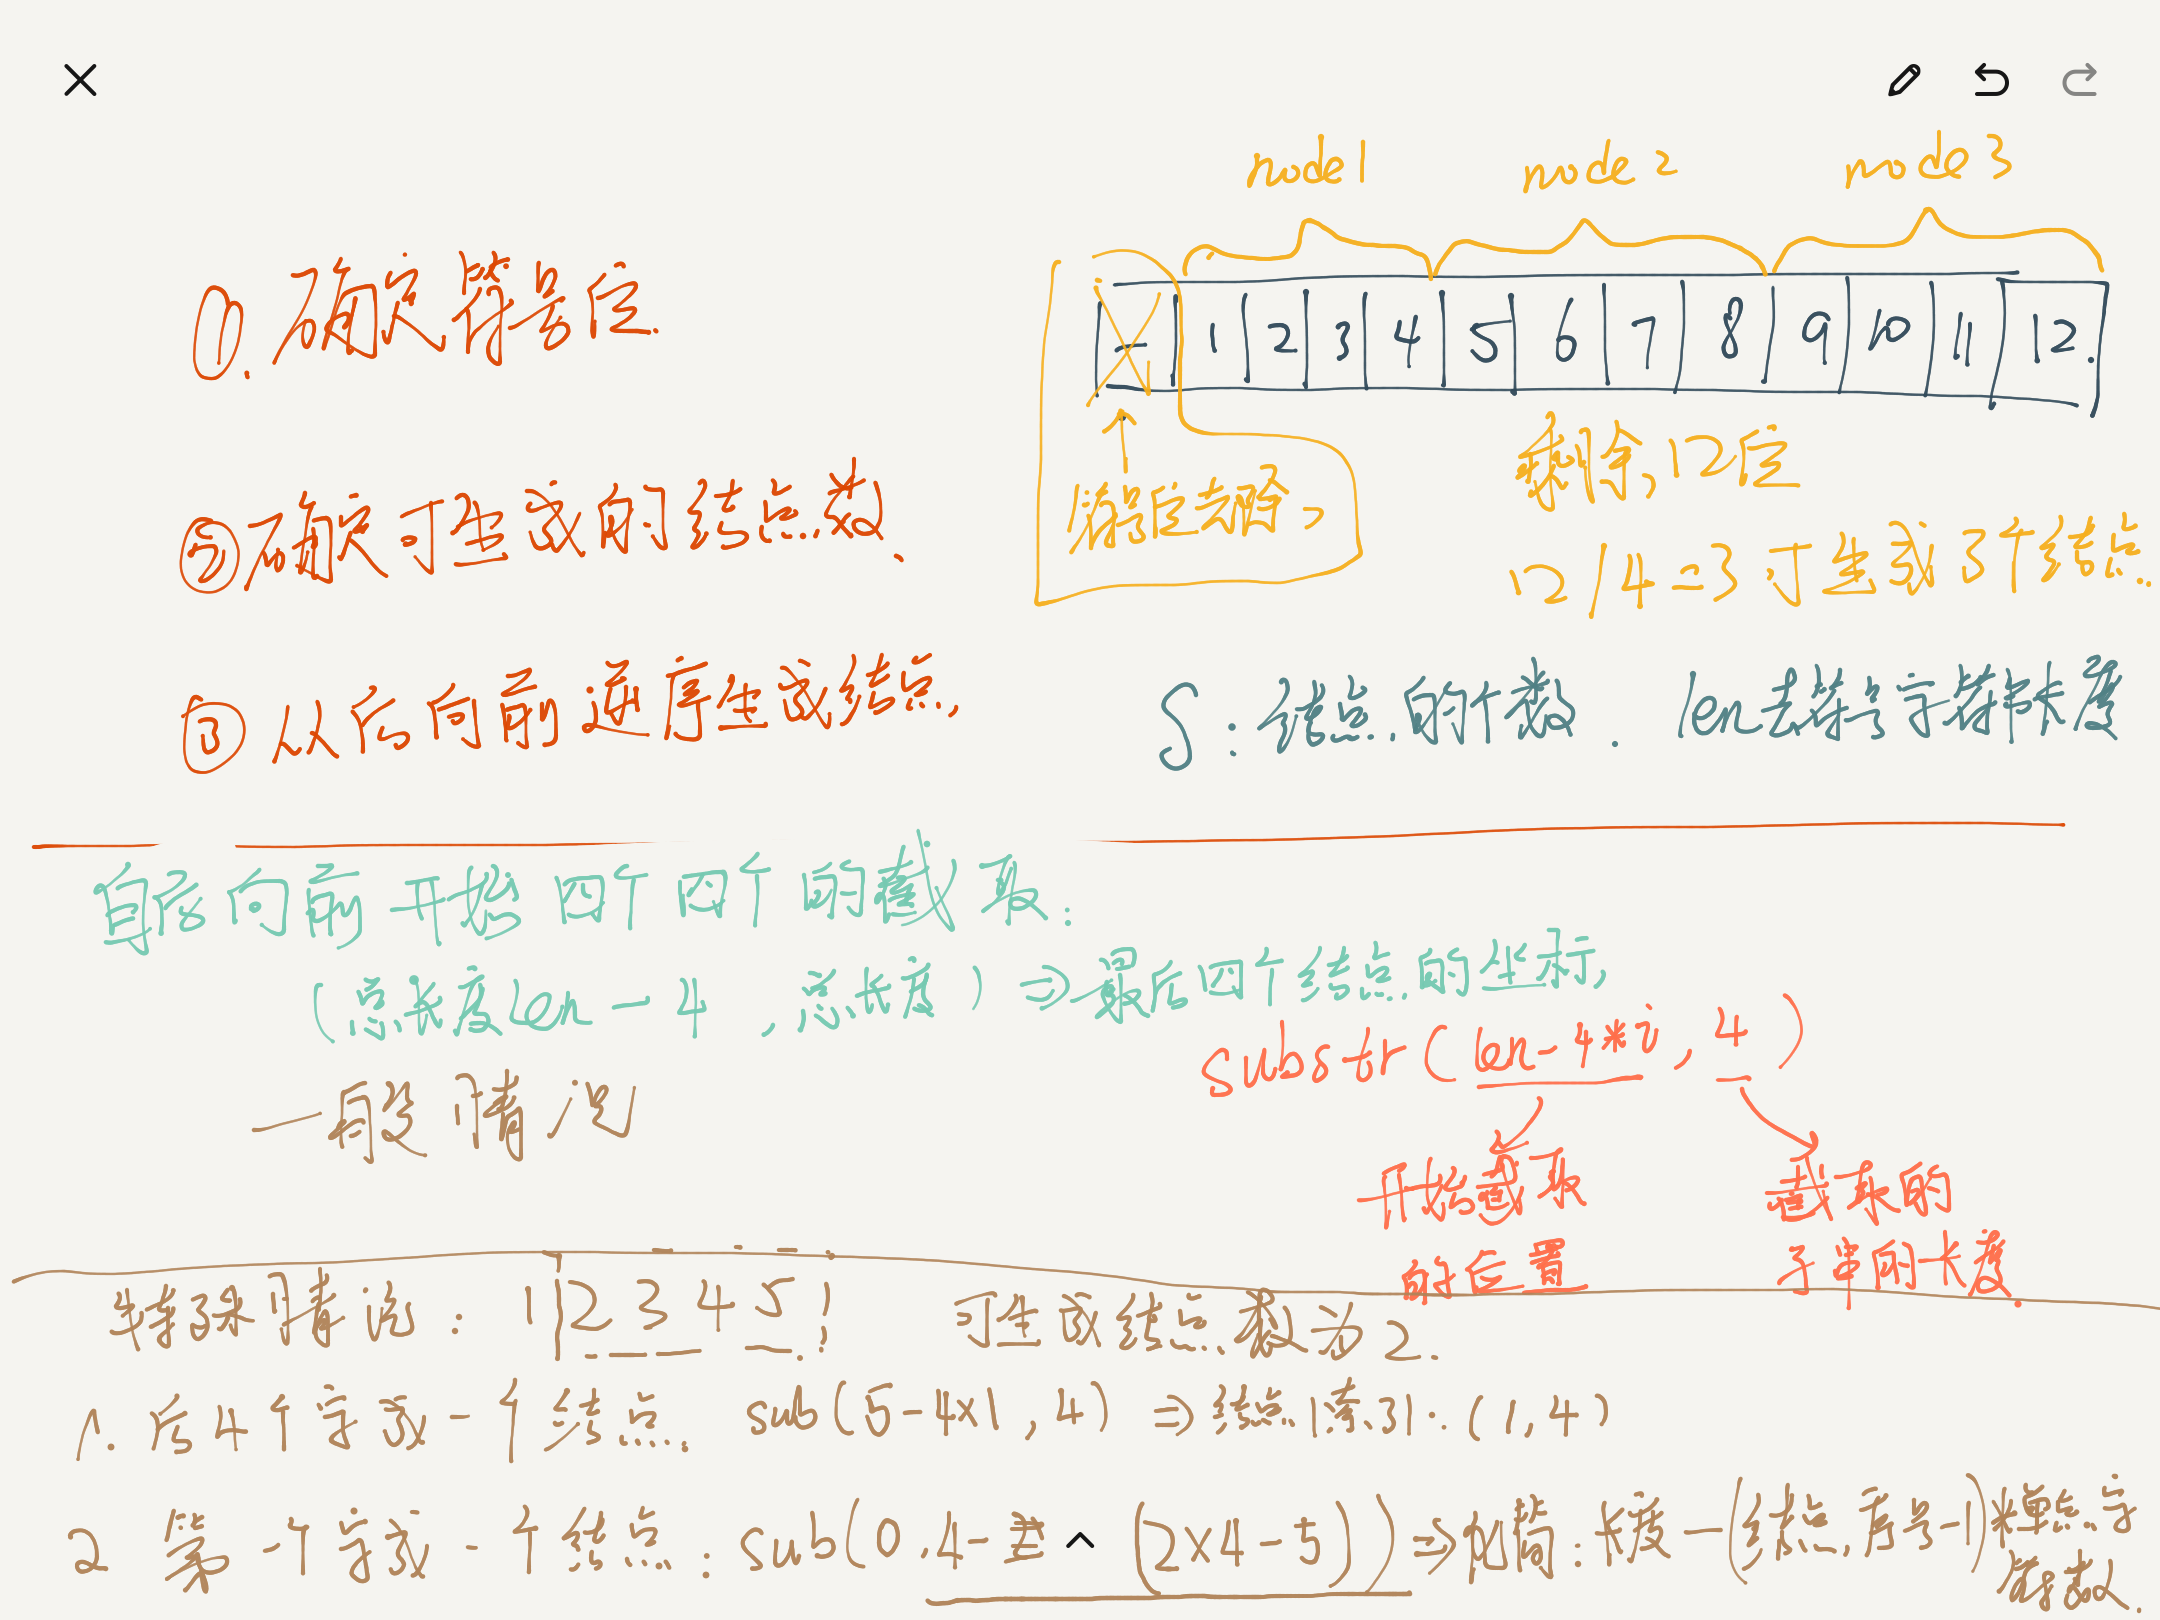 node1 node2 node3
①. 确定符号位.
- 1 2 3 4 5 6 7 8 9 10 11 12.
符号位去除,
剩除,12位
12/4=3 可生成3个结点.
②确定可生成的结点数.
③从后向前逆序生成结点,
S:结点的个数. len去符号字符串长度
自后向前开始四个四个的截取:
(总长度len-4,总长度)⇒最后四个结点的坐标,
substr(len-4*i,4)
一般情况
开始截取
的位置
截取的
子串的长度.
特殊情况: 1|2345! 可生成结点数为2.
1. 后4个字成一个结点. sub(5-4×1,4) ⇒结点1索引:(1,4)
2 第一个字成一个结点:sub(0,4-(2×4-5))⇒化简:长度-(结点序号-1)*单点字
符数.